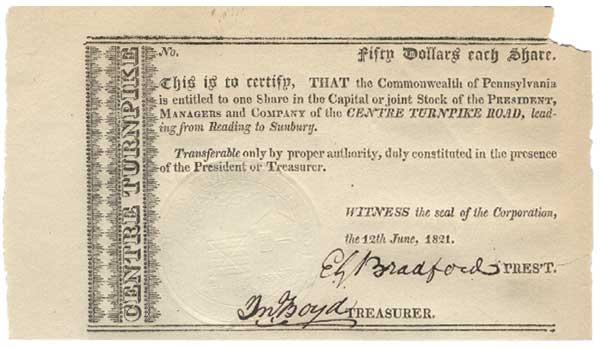 CENTRE TURNPIKE
No. Fifty Dollars each Share.
This is to certify, THAT the Commonwealth of Pennsylvania
is entitled to one Share in the Capital or joint Stock of the PRESIDENT,
MANAGERS and COMPANY of the CENTRE TURNPIKE ROAD, lead-
ing from Reading to Sunbury.
Transferable only by proper authority, duly constituted in the presence
of the President or Treasurer.
WITNESS the seal of the Corporation,
the 12th June, 1821.
EG Bradford PRES'T.
Jn. Boyd TREASURER.